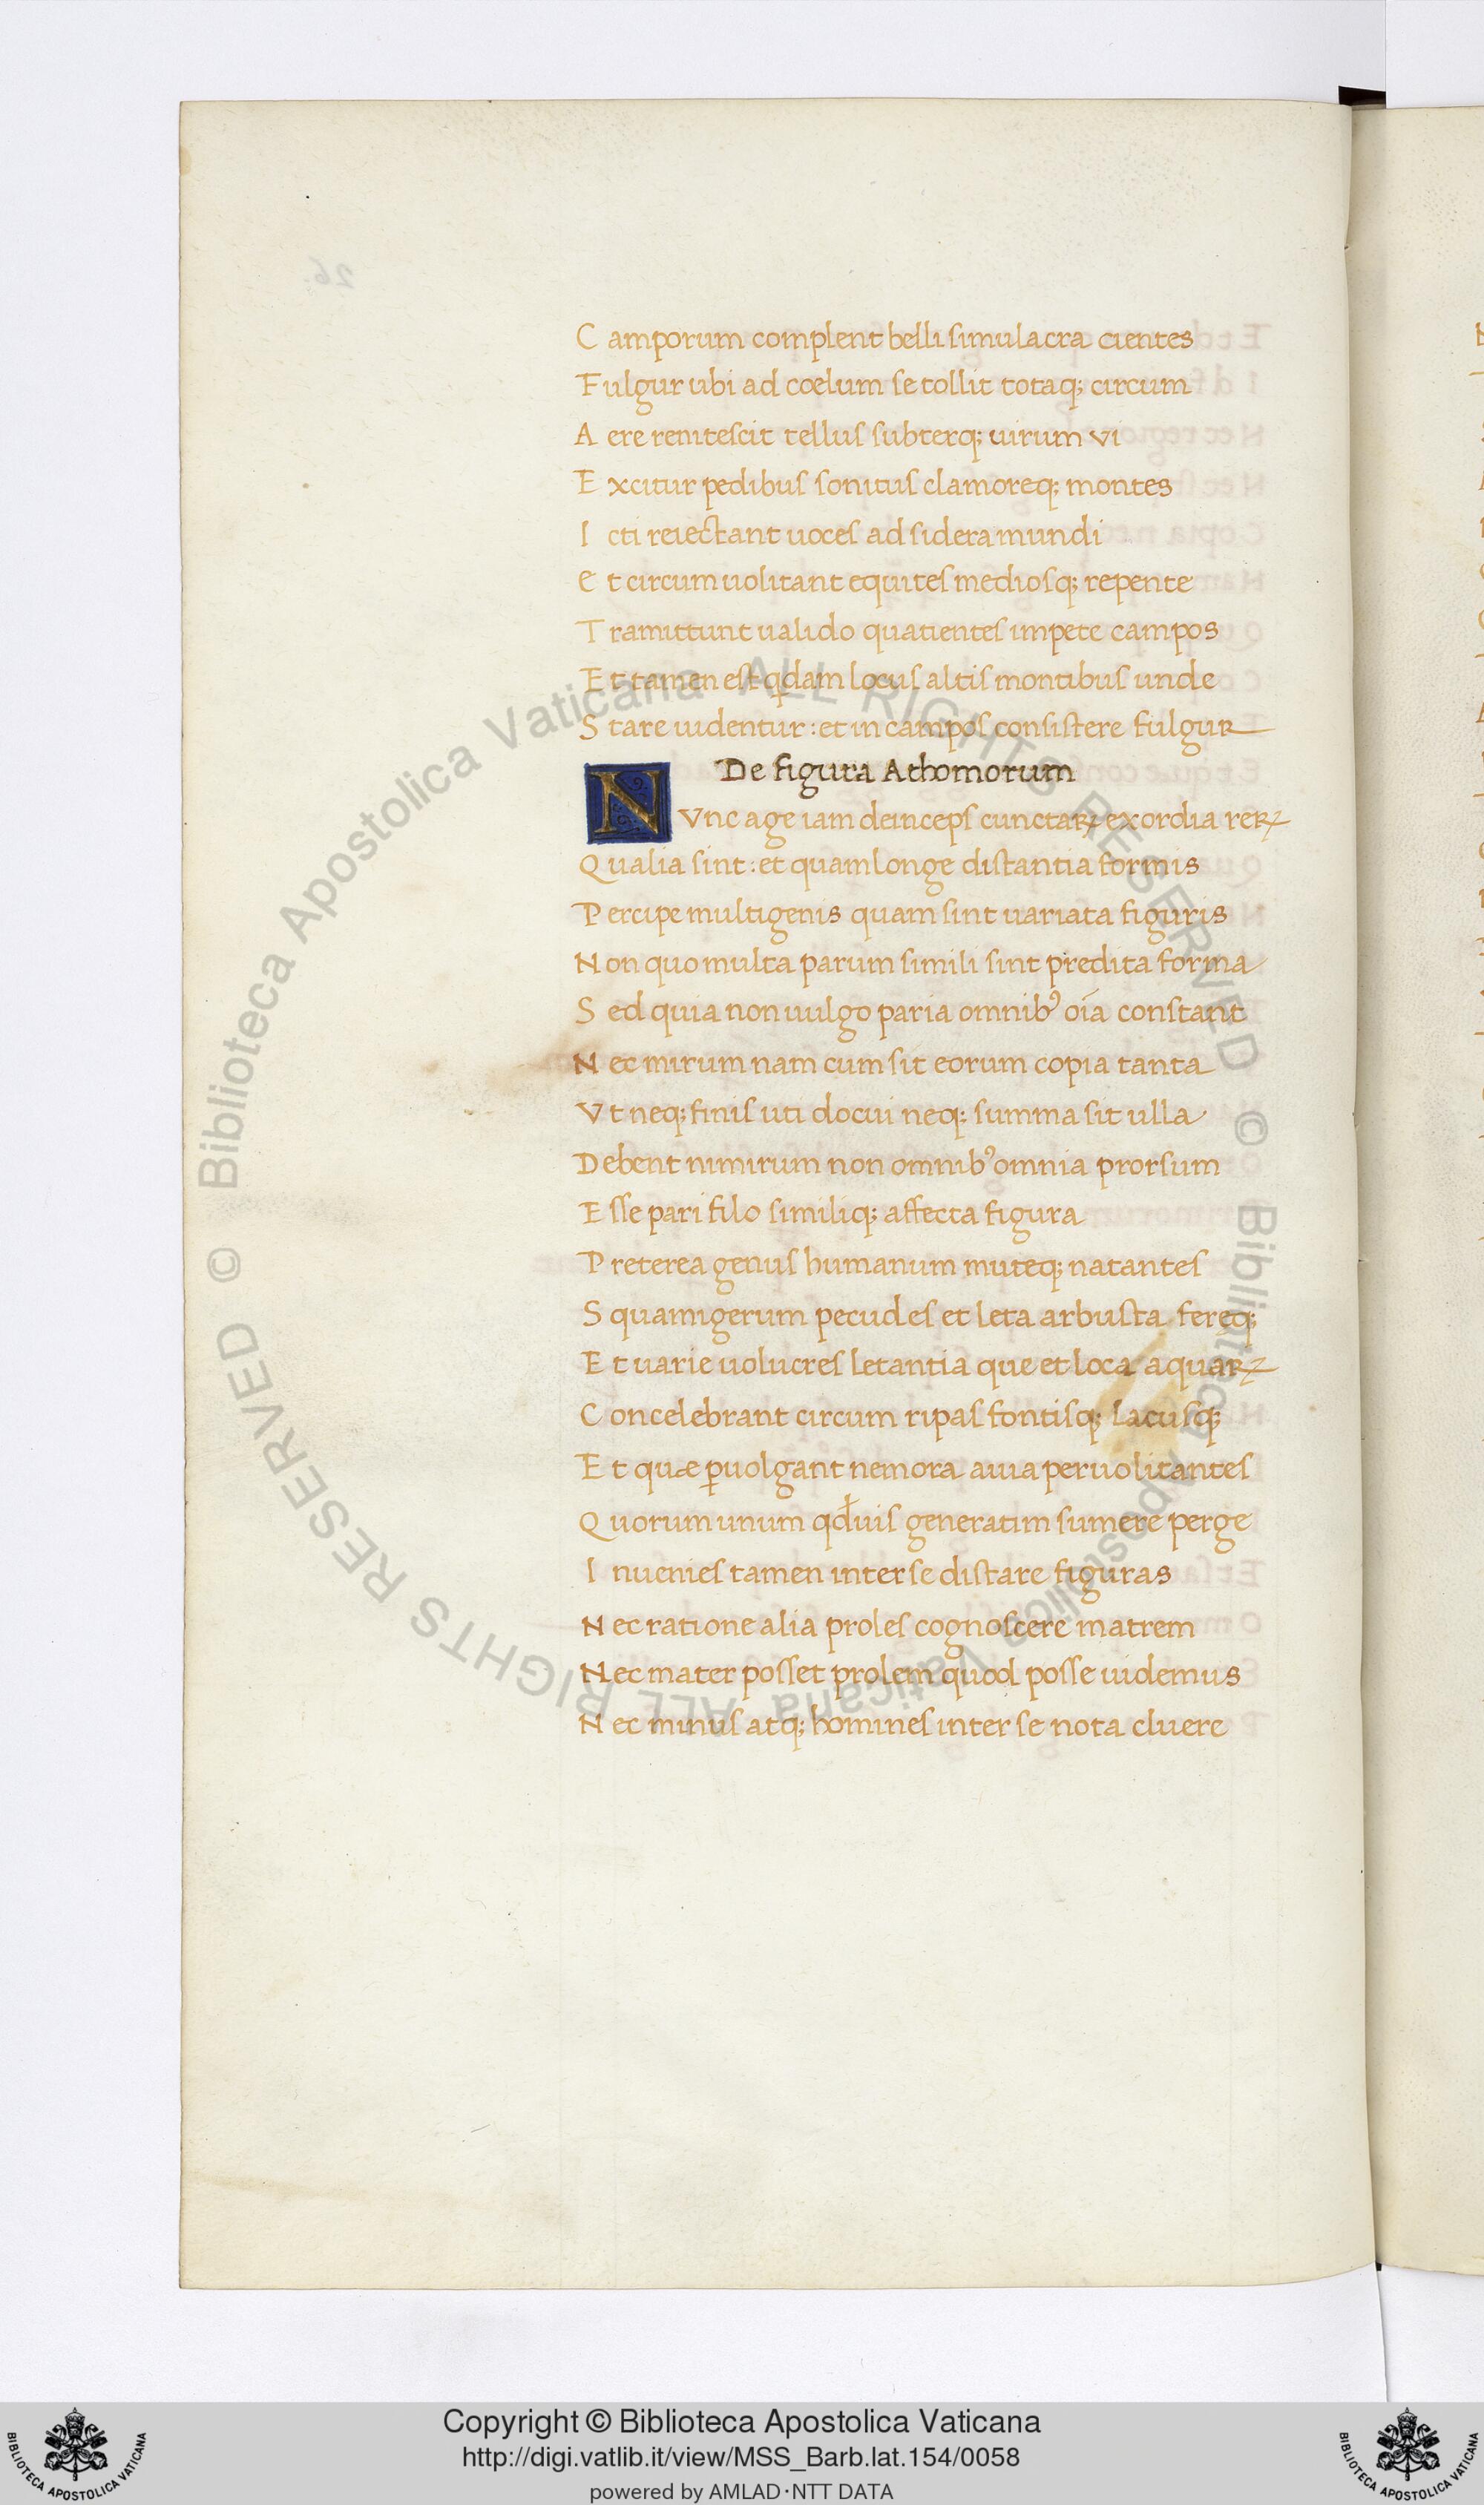 Camporum complent belli simulacra cientes
Fulgur ubi ad coelum se tollit totaq; circum
Aere renitescit tellus subterq; uirum vi
Excitur pedibus sonitus clamoreq; montes
Icti reiectant uoces ad sidera mundi
et circum uolitant equites mediosq; repente
Tramittunt ualido quatientes impete campos
Et tamen est qdam locus altis montibus unde
Stare uidentur: et in campos consistere fulgur
De figura Athomorum
NVnc age iam deinceps cunctaꝝ exordia reꝝ
Qualia sint: et quam longe distantia formis
Percipe multigenis quam sint uariata figuris
Non quo multa parum simili sint predita forma
Sed quia non uulgo paria omnibꝰ oīa constant
Nec mirum nam cum sit eorum copia tanta
Vt neq; finis uti docui neq; summa sit ulla
Debent nimirum non omnibꝰ omnia prorsum
Esse pari filo similiq; affecta figura
Preterea genus humanum muteq; natantes
Squamigerum pecudes et leta arbusta fereq;
Et uarie uolucres letantia que et loca aquaꝝ
Concelebrant circum ripas fontisq; lacusq;
Et quæ ꝑuolgant nemora auia peruolitantes
Quorum unum qđuis generatim sumere perge
Inuenies tamen inter se distare figuras
Nec ratione alia proles cognoscere matrem
Nec mater posset prolem quod posse uidemus
Nec minus atq; homines inter se nota cluere
Biblioteca Apostolica Vaticana ALL RIGHTS RESERVED ©
Biblioteca Apostolica Vaticana ALL RIGHTS RESERVED ©
Copyright © Biblioteca Apostolica Vaticana
http://digi.vatlib.it/view/MSS_Barb.lat.154/0058
powered by AMLAD·NTT DATA
BIBLIOTECA APOSTOLICA VATICANA
BIBLIOTECA APOSTOLICA VATICANA